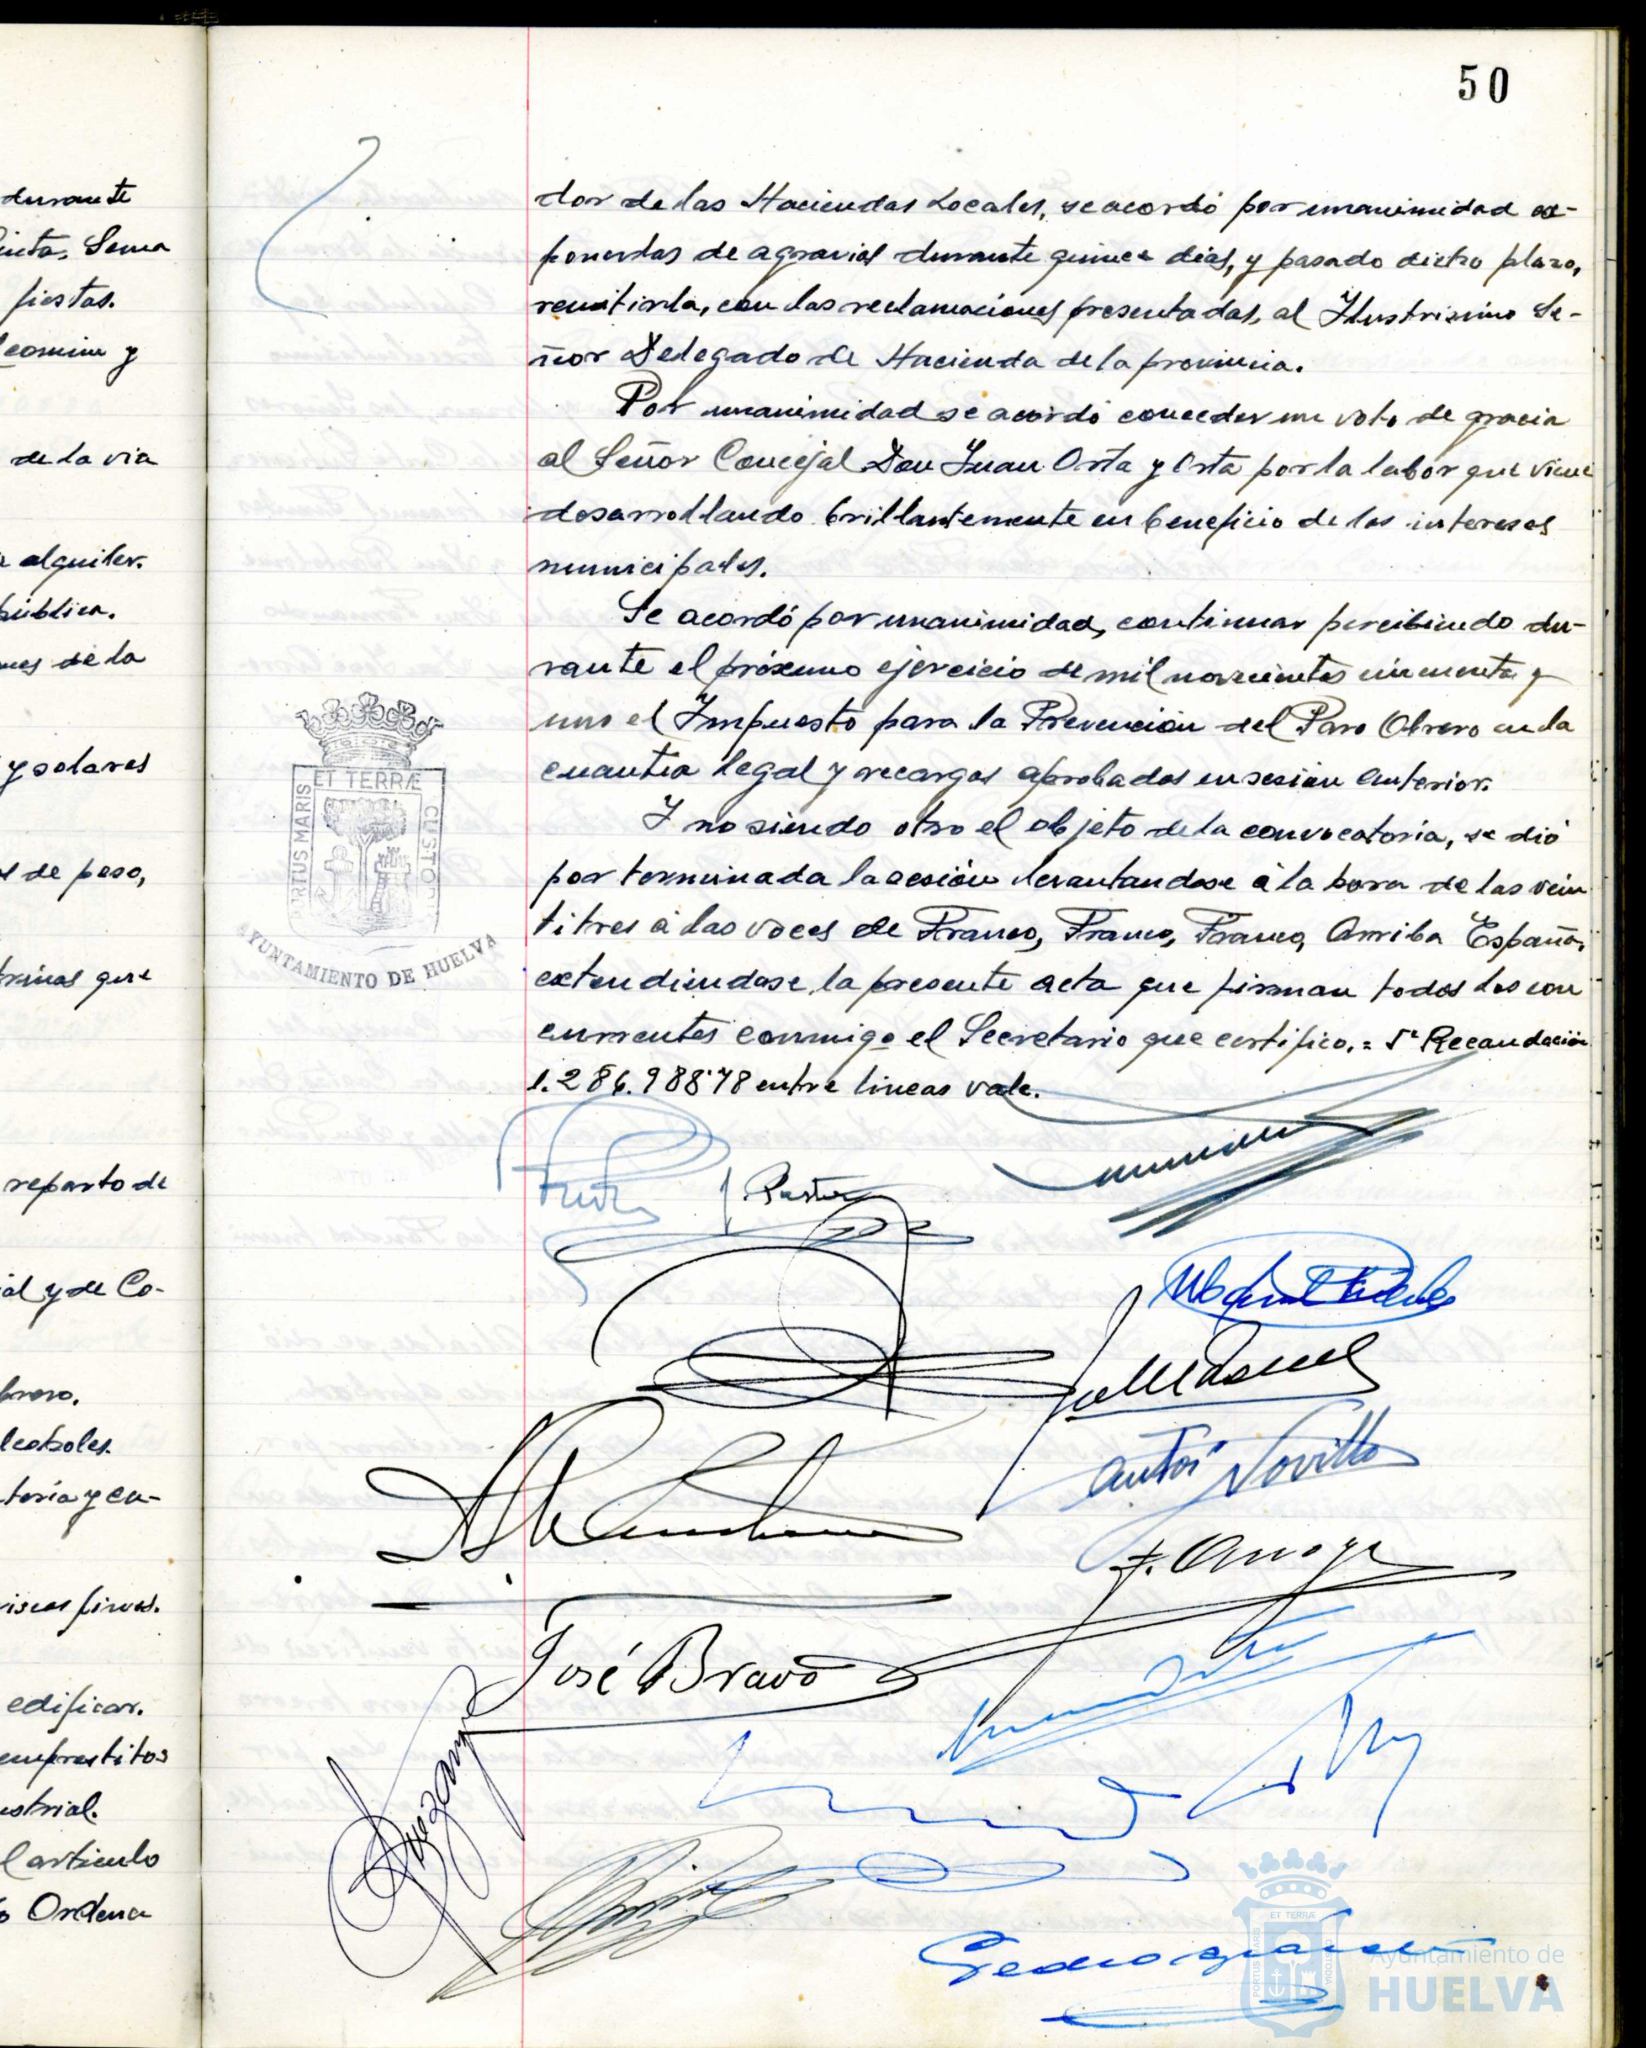 50
durante
Sema
fiestas.
y
de la via
alquiler.
pública.
de la
y solares
de peso,
que
reparto de
y de Co-
y en-
edificar.
emprestitos
articulo
Ordena
dor de las Haciendas Locales, se acordó por unanimidad ex-
ponerlas de agravios durante quince dias, y pasado dicho plazo,
remitirla, con las reclamaciones presentadas, al Ilustrisimo Se-
ñor Delegado de Hacienda de la provincia.
Por unanimidad se acordó conceder un voto de gracia
al Señor Concejal Don Juan Orta y Orta por la labor que viene
desarrollando brillantemente en beneficio de los intereses
municipales.
Se acordó por unanimidad, continuar percibiendo du-
rante el próximo ejercicio de mil novecientos cincuenta y
uno el Impuesto para la Prevención del Paro Obrero en la
cuantia legal y recargos aprobados en sesión anterior.
Y no siendo otro el objeto de la convocatoria, se dió
por terminada la sesión levantandose á la hora de las vein
titres á las voces de Franco, Franco, Franco, Arriba España,
extendiendose la presente acta que firman todos los con
currentes conmigo el Secretario que certifico. = Recaudación
1.286.988'78 entre lineas vale.
PORTUS MARIS
ET TERRÆ
CUSTODIA
AYUNTAMIENTO DE HUELVA
J. Pastor
Novillo
José Bravo
PORTUS MARIS
ET TERRÆ
CUSTODIA
Ayuntamiento de
HUELVA